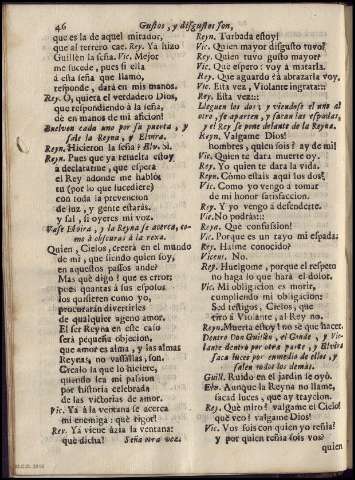 46
Gustos, y disgustos son,
que es la de aquel mirador,
que al terrero cae. Rey. Ya hizo
Guillèn la seña. Vic. Mejor
me sucede, pues si ella
à esta seña que llamo,
responde, darà en mis manos.
Rey. O, quiera el verdadero Dios,
que respondiendo à la seña,
dè en manos de mi aficion!
Buelven cada uno por su puerta, y
sale la Reyna, y Elvira.
Reyn. Hicieron la seña? Elv. Sì.
Reyn. Pues que ya resuelta estoy
à declararme, que espera
el Rey adonde me hablò;
tu (por lo que sucediere)
con toda la prevencion
de luz, y gente estaràs,
y sal, si oyeres mi voz.
Vase Elvira, y la Reyna se acerca, co-
mo à obscuras à la rexa.
Quien, Cielos, creerà en el mundo
de mi, que siendo quien soy,
en aquestos passos ande?
Mas què digo! que es error;
pues quantas à sus esposos
los quisieren como yo,
procuraràn divertirles
de qualquier ageno amor.
El ser Reyna en este caso
serà pequeña objecion,
que amor es alma, y las almas
Reynas, no vassallas, son.
Crealo la que lo hiciere,
quando sea mi passion
por historia celebrada
de las victorias de amor.
Vic. Ya à la ventana se acerca
mi enemiga: què rigor!
Rey. Ya viene àzia la ventana:
què dicha! Seña otra vez.
Reyn. Turbada estoy!
Vic. Quien mayor disgusto tuvo?
Rey. Quien tuvo gusto mayor?
Vic. Què espero? voy à matarla.
Rey. Que aguardo? à abrazarla voy.
Vic. Esta vez, Violante ingrata:::
Rey. Esta vez:::
Lleguen los dos; y viendose el uno al
otro, se aparten, y sacan las espadas,
y el Rey se pone delante de la Reyna.
Reyn. Valgame Dios!
hombres, quien sois? ay de mi!
Vic. Quien te darà muerte oy.
Rey. Yo quien te darà la vida.
Reyn. Còmo estais aqui los dos?
Vic. Como yo vengo à tomar
de mi honor satisfaccion.
Rey. Y yo vengo à defenderte.
Vic. No podràs:::
Reyn. Què confusion!
Vic. Porque es un rayo mi espada;
Rey. Hasme conocido?
Vicent. No.
Rey. Huelgome, porque el respeto
no haga lo que harà el dolor.
Vic. Mi obligacion es morir,
cumpliendo mi obligacion:
Sed testigos, Cielos, que
tiro à Violante, al Rey no.
Reyn. Muerta estoy! no sè que hacer.
Dentro Don Guillèn, el Conde, y Vio-
lante dentro por otra parte, y Elvira
saca luces por enmedio de ellos, y
salen todos los demàs.
Guill. Ruido en el jardin se oyò.
Elv. Aunque la Reyna no llame,
sacad luces, que ay traycion.
Rey. Què miro! valgame el Cielo!
què veo! valgame Dios!
Vic. Vos sois con quien yo reñia?
y por quien reñia sois vos?
quien